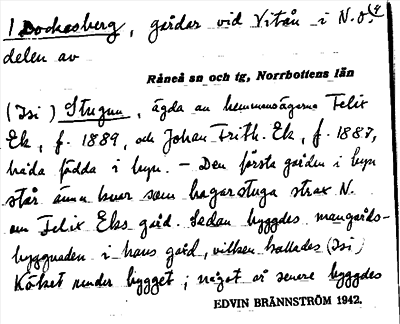 1 Bockasberg, gårdar vid Vitån i N.ö.
delen av
Råneå sn och tg, Norrbottens län
(Isi) Stugun, ägda av hemmansägarna Felix
Ek, f. 1889, och Johan Frith. Ek, f. 1887,
båda födda i byn. – Den första gården i byn
står ännu kvar som bagarstuga strax N.
om Felix Eks gård. Sedan byggdes mangårds-
byggnaden i hans gård, vilken kallades (Isi)
Köket under bygget; något år senare byggdes
EDVIN BRÄNNSTRÖM 1942.